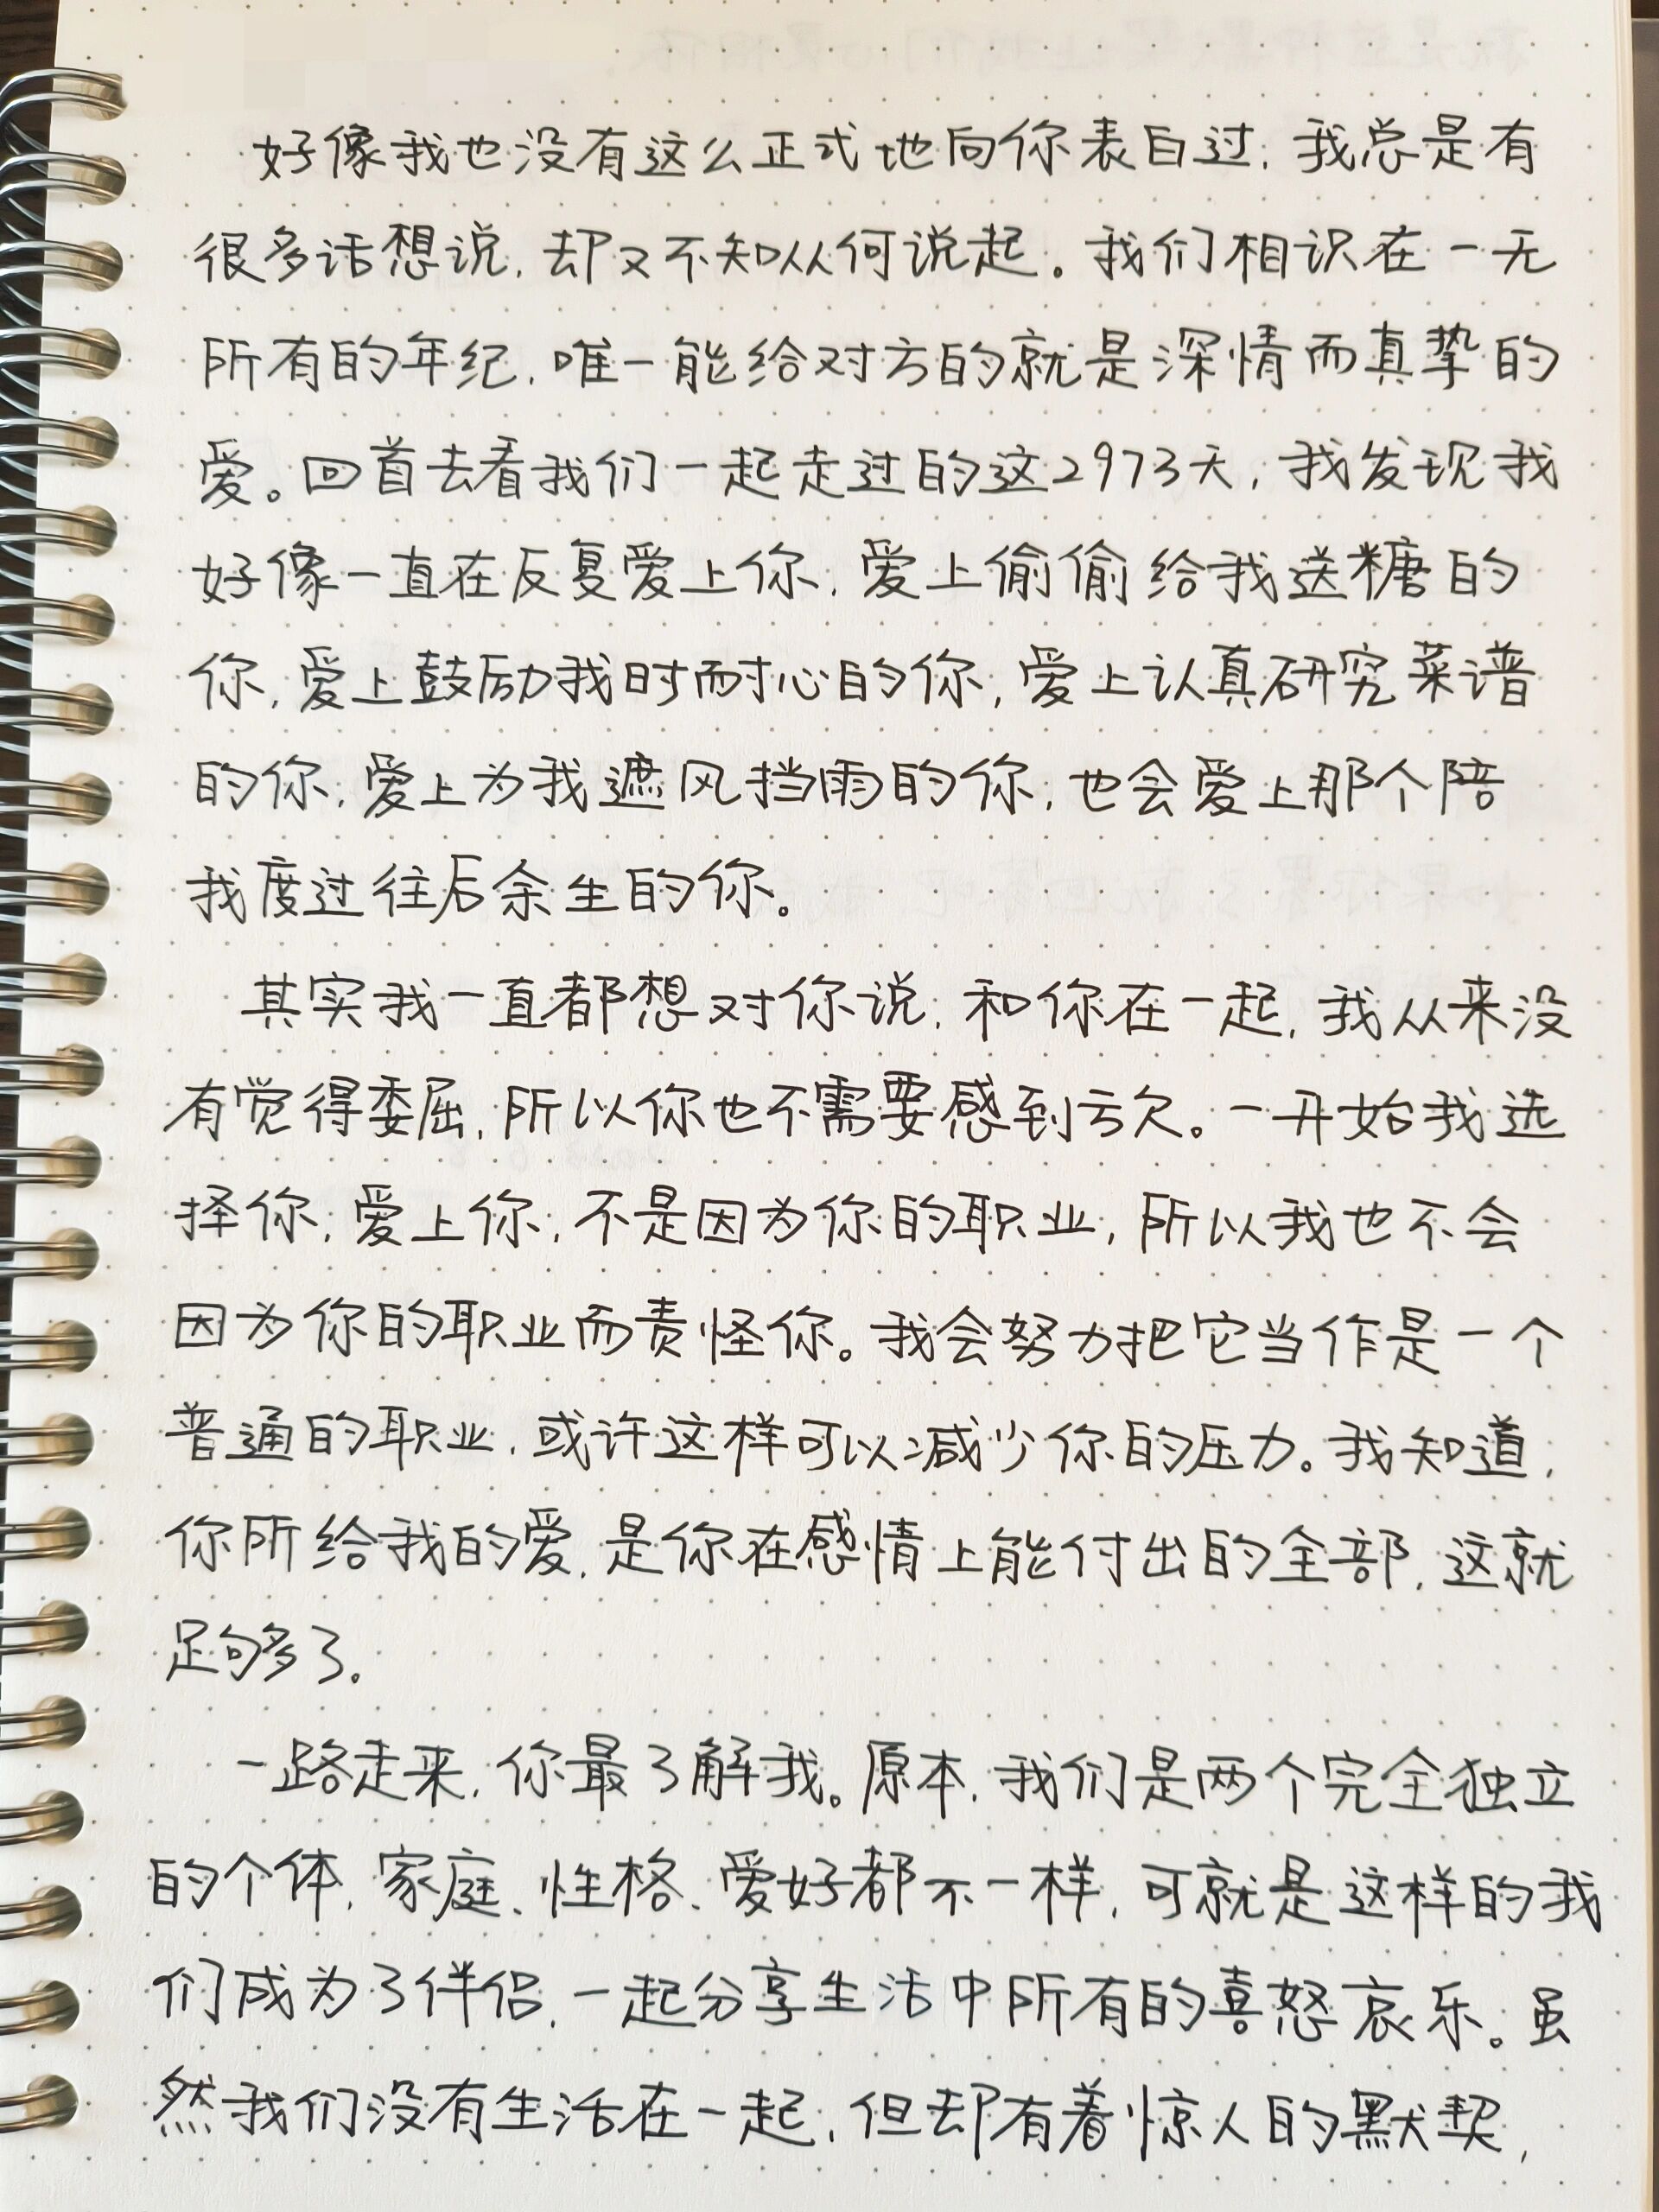 好像我也没有这么正式地向你表白过，我总是有
很多话想说，却又不知从何说起。我们相识在一无
所有的年纪，唯一能给对方的就是深情而真挚的
爱。回首去看我们一起走过的这2973天，我发现我
好像一直在反复爱上你，爱上偷偷给我送糖的
你，爱上鼓励我时耐心的你，爱上认真研究菜谱
的你，爱上为我遮风挡雨的你，也会爱上那个陪
我度过往后余生的你。
其实我一直都想对你说，和你在一起，我从来没
有觉得委屈，所以你也不需要感到亏欠。一开始我选
择你，爱上你，不是因为你的职业，所以我也不会
因为你的职业而责怪你。我会努力把它当作是一个
普通的职业，或许这样可以减少你的压力。我知道，
你所给我的爱，是你在感情上能付出的全部，这就
足够多了。
一路走来，你最了解我。原本，我们是两个完全独立
的个体，家庭、性格、爱好都不一样，可就是这样的我
们成为了伴侣，一起分享生活中所有的喜怒哀乐。虽
然我们没有生活在一起，但却有着惊人的默契，